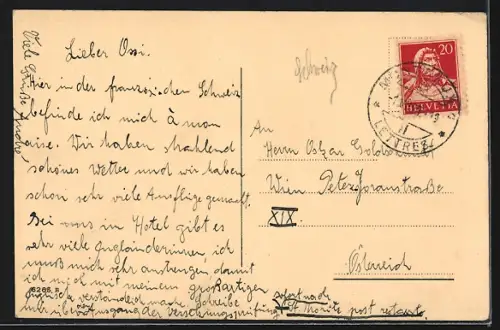 Viele Grüße
Lieber Ossi.
Hier in der französischen Schweiz
befinde ich mich à mon
aise. Wir haben strahlend
schönes Wetter und wir haben
schon sehr viele Ausflüge gemacht.
Bei uns im Hotel gibt es
sehr viele Engländerinnen, ich
muß mich sehr anstrengen damit
ich mich mit meinem großartigen
Englisch verständlich mach. Schreibe
mir über Ausgang der
sofort nach
St Moritz post restante
Schweiz
20
HELVETIA
LETTRES
An
Herrn Oskar
Wien
XIX.
Österreich
6266 B